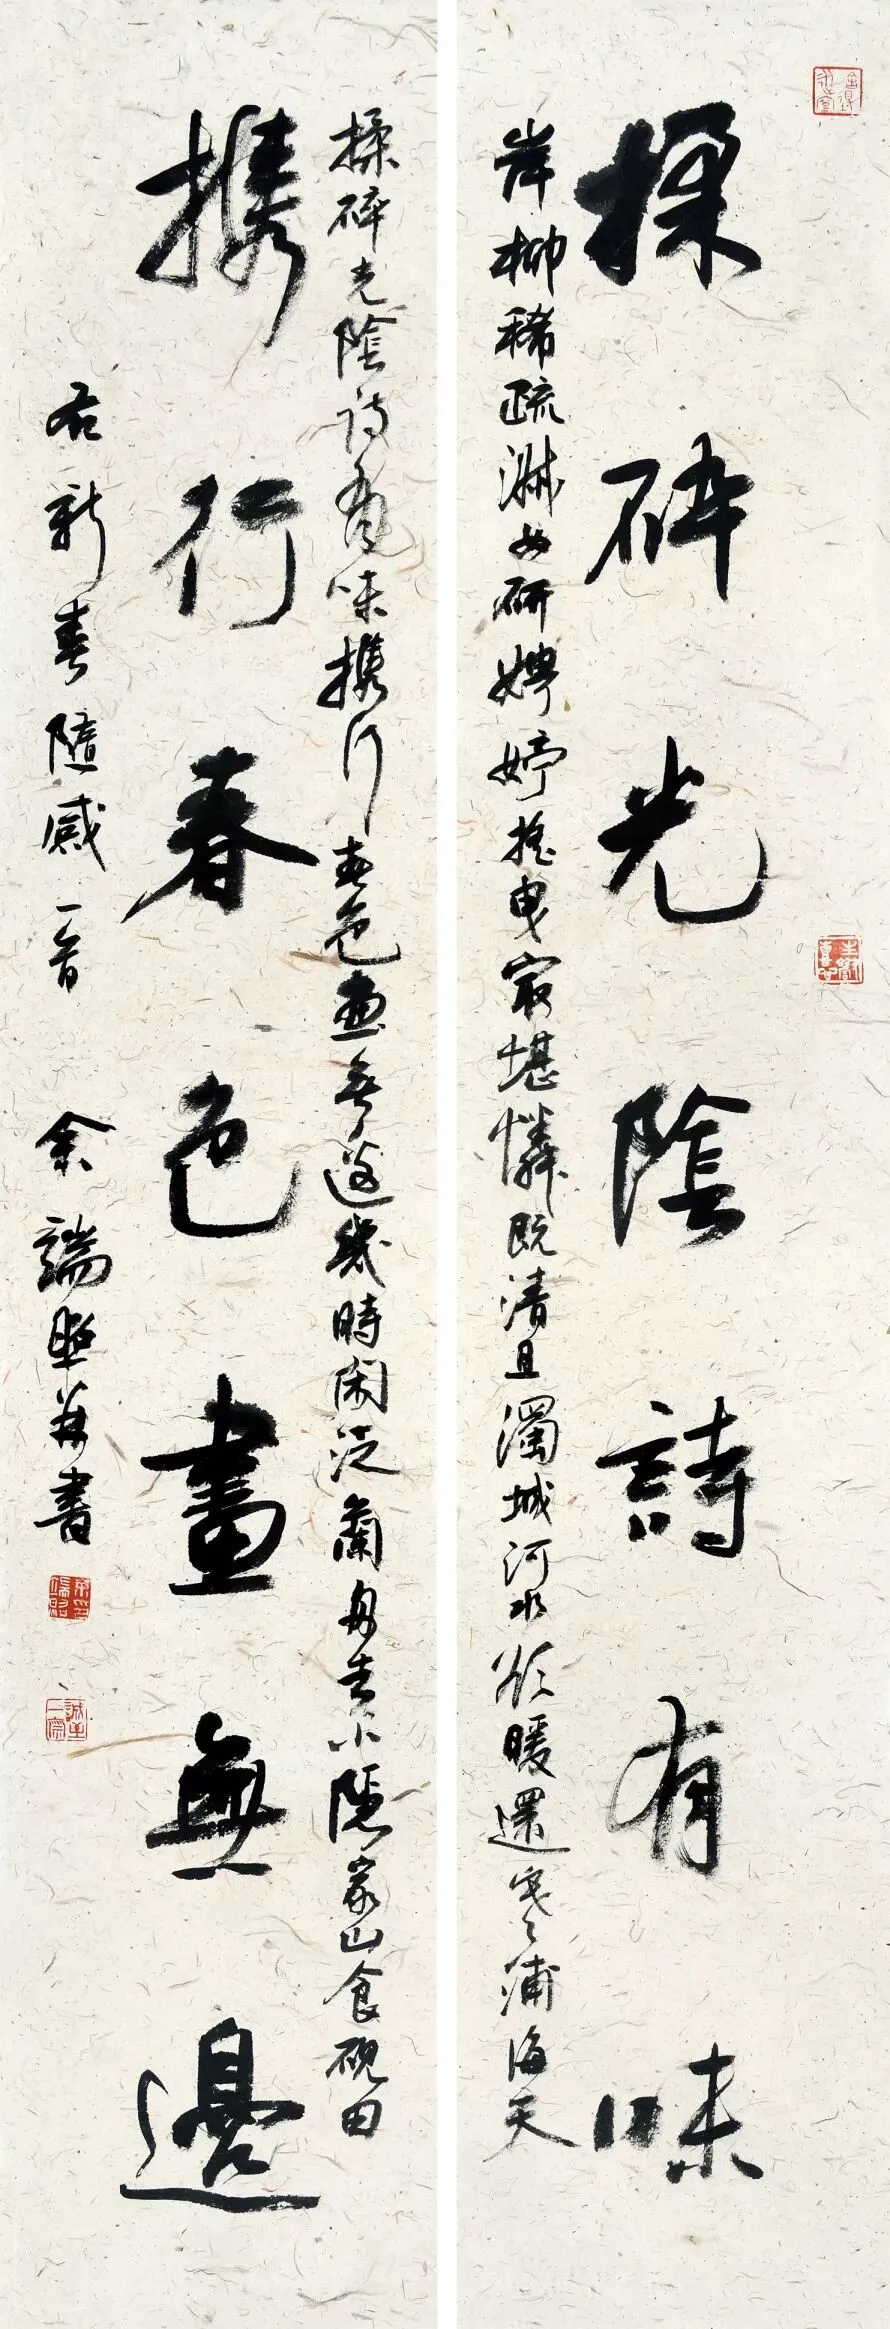 揉碎光陰詩有味
岸柳稀疏淑女研娉婷搖曳最堪憐既清且濁城河水欲暖還寒浦海天
揉碎光陰詩有味携行春色畫無邊幾時閑泛蘭舟去小隱家山食硯田
携行春色畫無邊
右新春隨感一首 余端照并書